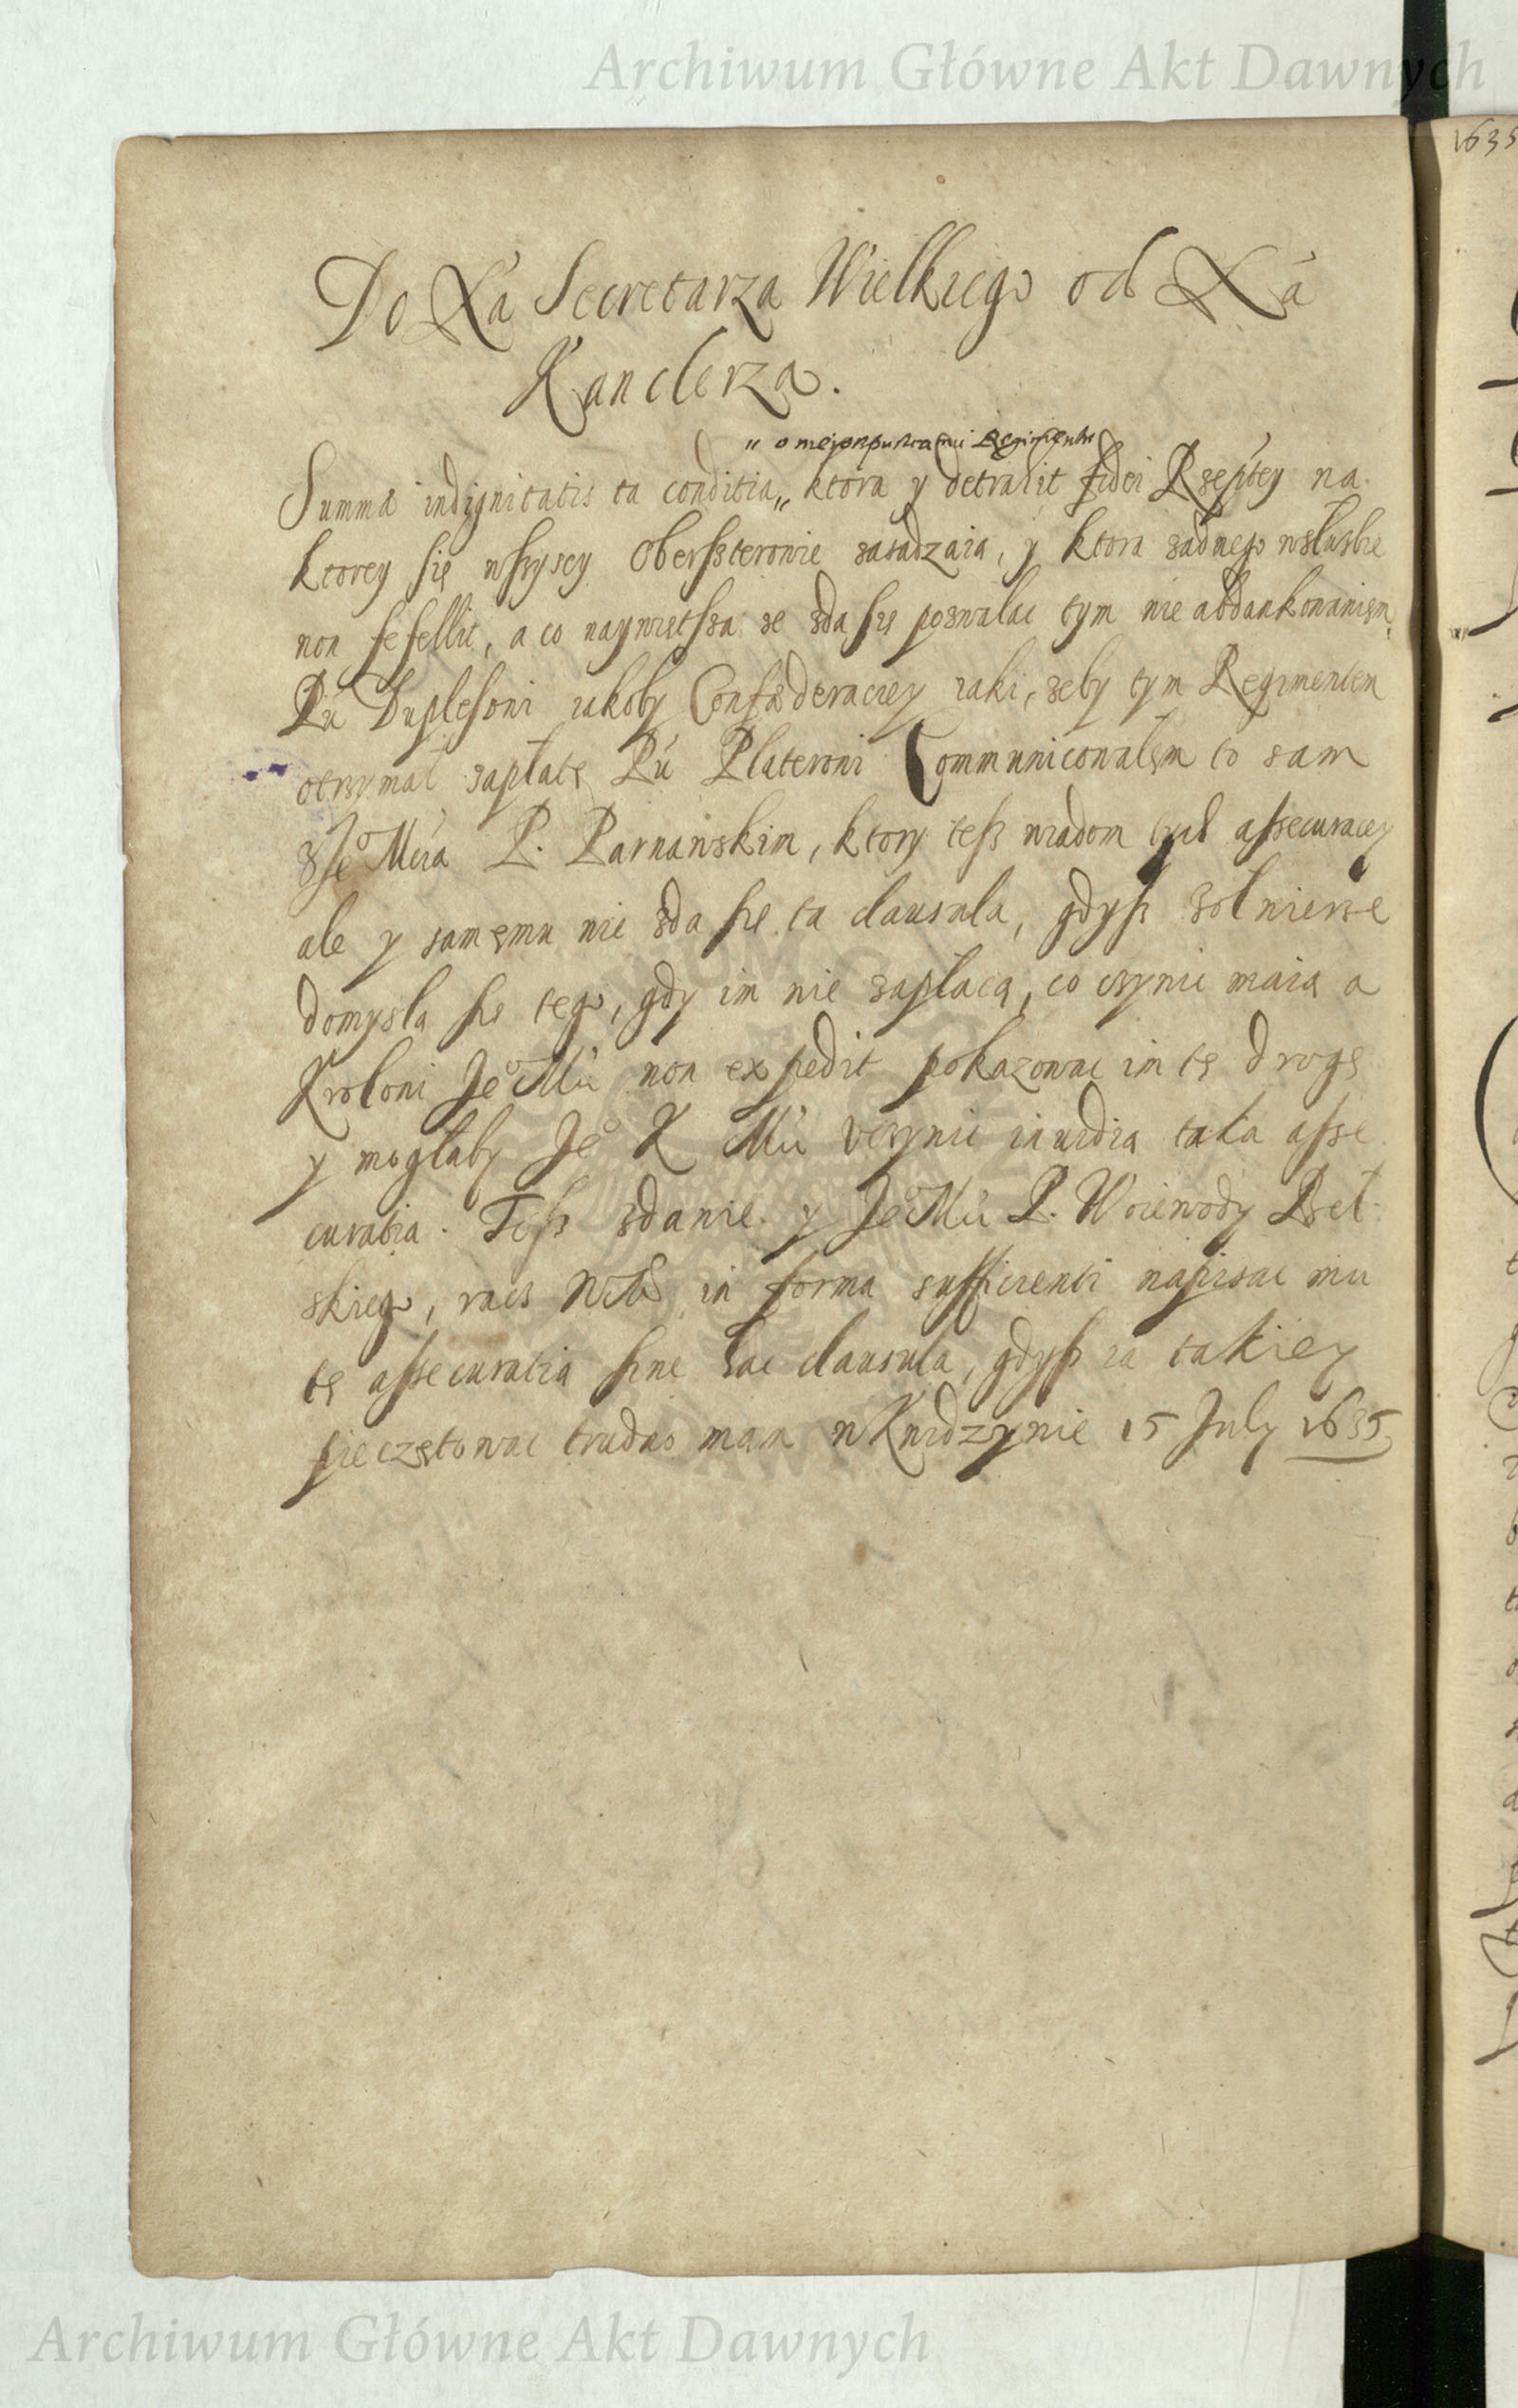 Archiwum Główne Akt Dawnych
1635
Do Xa Secretarza Wielkiego od Xa
Kanclerza.
" o nie Regimentu
Summa indignitatis ta conditia,, ktora y detrahit fidei Rzeptey na
ktorey się wszyscy Oberszterowie zasadzaią, y ktora zadnego wsłuzbie
non fefellit, a co naywiętsza ze zda się pozwalac tym nie abdankowaniem
Pu Duplesowi iakoby Confæderaciey iaki, zeby tym Regimentem
otrzymał zapłatę Pu Platerowi Communicowałęm to sam
z Je⁰ Mcią P. Parnawskim, ktory tesz wiadom był assecuraciey
ale y samęmu nie zda się ta clausula, gdysz zołnierze
domysla się tego, gdy im nie zapłacą, co czynic maią a
Krolowi Je⁰ Mci non expedit pokazowac im tę drogę
y mogłaby Je⁰ K Mci vczynic inuidią taka asse
curatia. Tesz zdanie y Je⁰ Mci P. Woiewody Bel
skiego, racz WM in forma sufficienti napisac mu
tę assecuratią sine hac clausula, gdysz ia takiey
pieczętowac trudno mam w Knidzynie 15 July 1635
Archiwum Główne Akt Dawnych